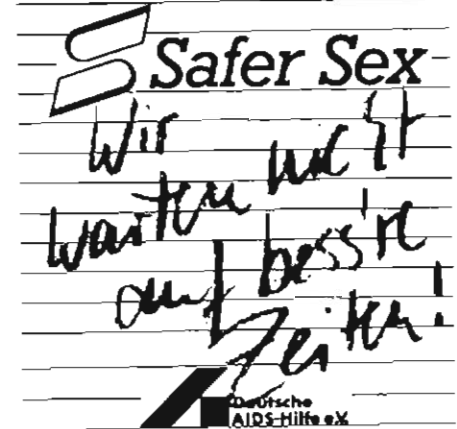 Safer Sex
Wir
warten nicht
auf bess're
Zeiten!
Deutsche
AIDS-Hilfe e.V.